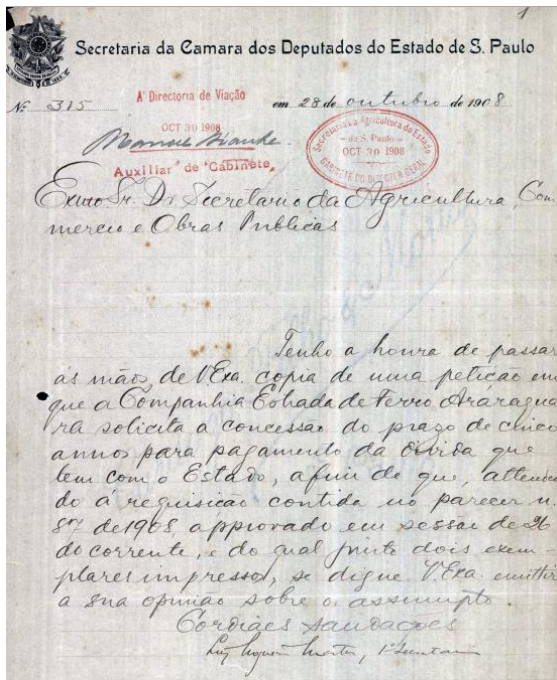 1
Secretaria da Camara dos Deputados do Estado de S. Paulo
Nº 315 em 28 de outubro de 1908
A' Directoria de Viação
OCT 30 1908
Auxiliar de Gabinete,
Secretaria da Agricultura do Estado
de S. Paulo
OCT 30 1908
GABINETE DO DIRECTOR GERAL
Exmo Sr. Dr. Secretario da Agricultura, Com
mercio e Obras Publicas
Tenho a honra de passar
ás mãos de V.Exa. copia de uma petição em
que a Companhia Estrada de Ferro Araraqua
ra solicita a concessão do prazo de cinco
annos para pagamento da divida que
tem com o Estado, afim de que, attenden
do á requisição contida no parecer n.
de 1908 approvado em sessão de 26
do corrente, e do qual junto dois exem
plares impressos, se digne V.Exa. emittir
a sua opinião sobre o assumpto.
Cordiaes saudações
1º Secretario